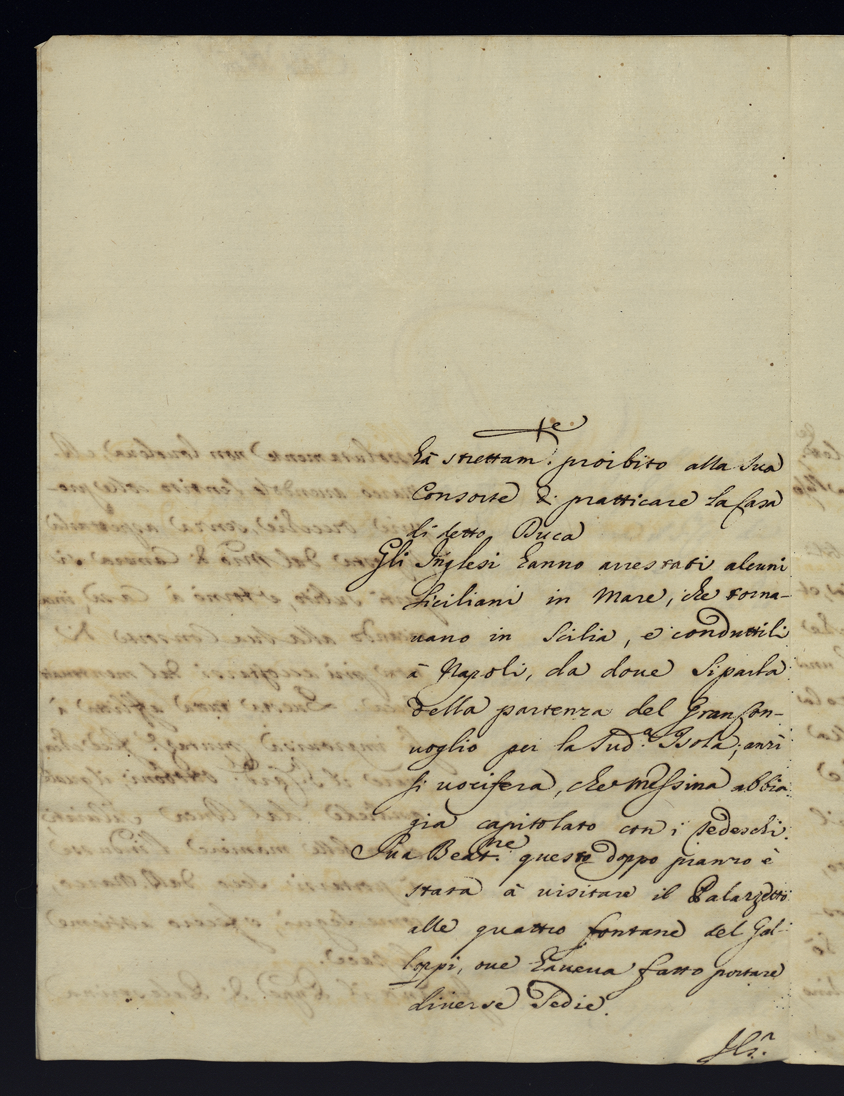 hà strettam.te proibito alla sua
Consorte di pratticare la Casa
di detto Duca
Gli Inglesi hanno arrestati alcuni
Siciliani in Mare, che torna-
uano in Scilia, e conduttili
à Napoli, da doue si parla
della partenza del Gran Con-
uoglio per la Sud.a Isola; anzi
si uocifera, che Messina abbia
gia capitolato con i Tedeschi.
Sua Beat.ne questo doppo pranzo è
stata à visitare il Palazzetto
alle quattro fontane del Gal-
loppi, oue haueua fatto portare
diuerse Sedie.